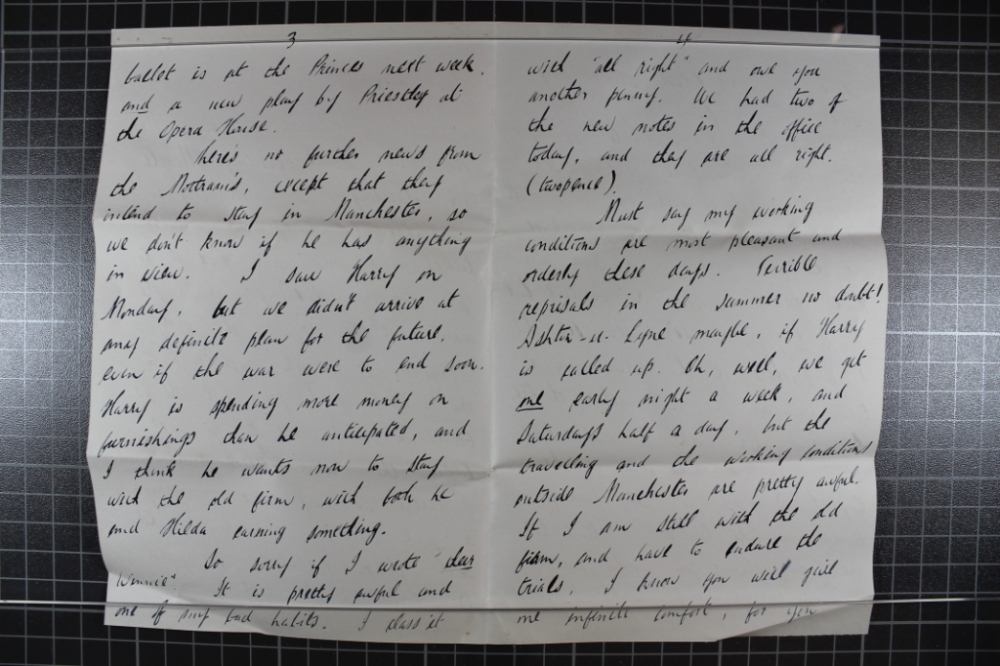 3
ballet is at the Princes next week.
and a new play by Priestley at
the Opera House.
here's no further news from
the Mottram's, except that they
intend to stay in Manchester, so
we don't know if he has anything
in view. I saw Harry on
Monday, but we didn't arrive at
any definite plan for the future.
even if the war were to end soon.
Harry is spending more money on
furnishings than he anticipated, and
I think he wants now to stay
with the old firm, with both he
and Hilda earning something.
So sorry if I wrote "dear
Winnie" It is pretty awful and
one of my bad habits. I class it
4
with "all right" and owe you
another penny. We had two of
the new notes in the office
today, and they are all right.
(twopence).
Must say my working
conditions are most pleasant and
orderly these days. Terrible
reprisals in the summer no doubt!
Ashton-u-Lyne maybe, if Harry
is called up. Oh, well, we get
one early night a week, and
Saturdays half a day, but the
travelling and the working conditions
outside Manchester are pretty awful.
If I am still with the old
firm, and have to endure the
trials, I know you will give
me infinite comfort, for you